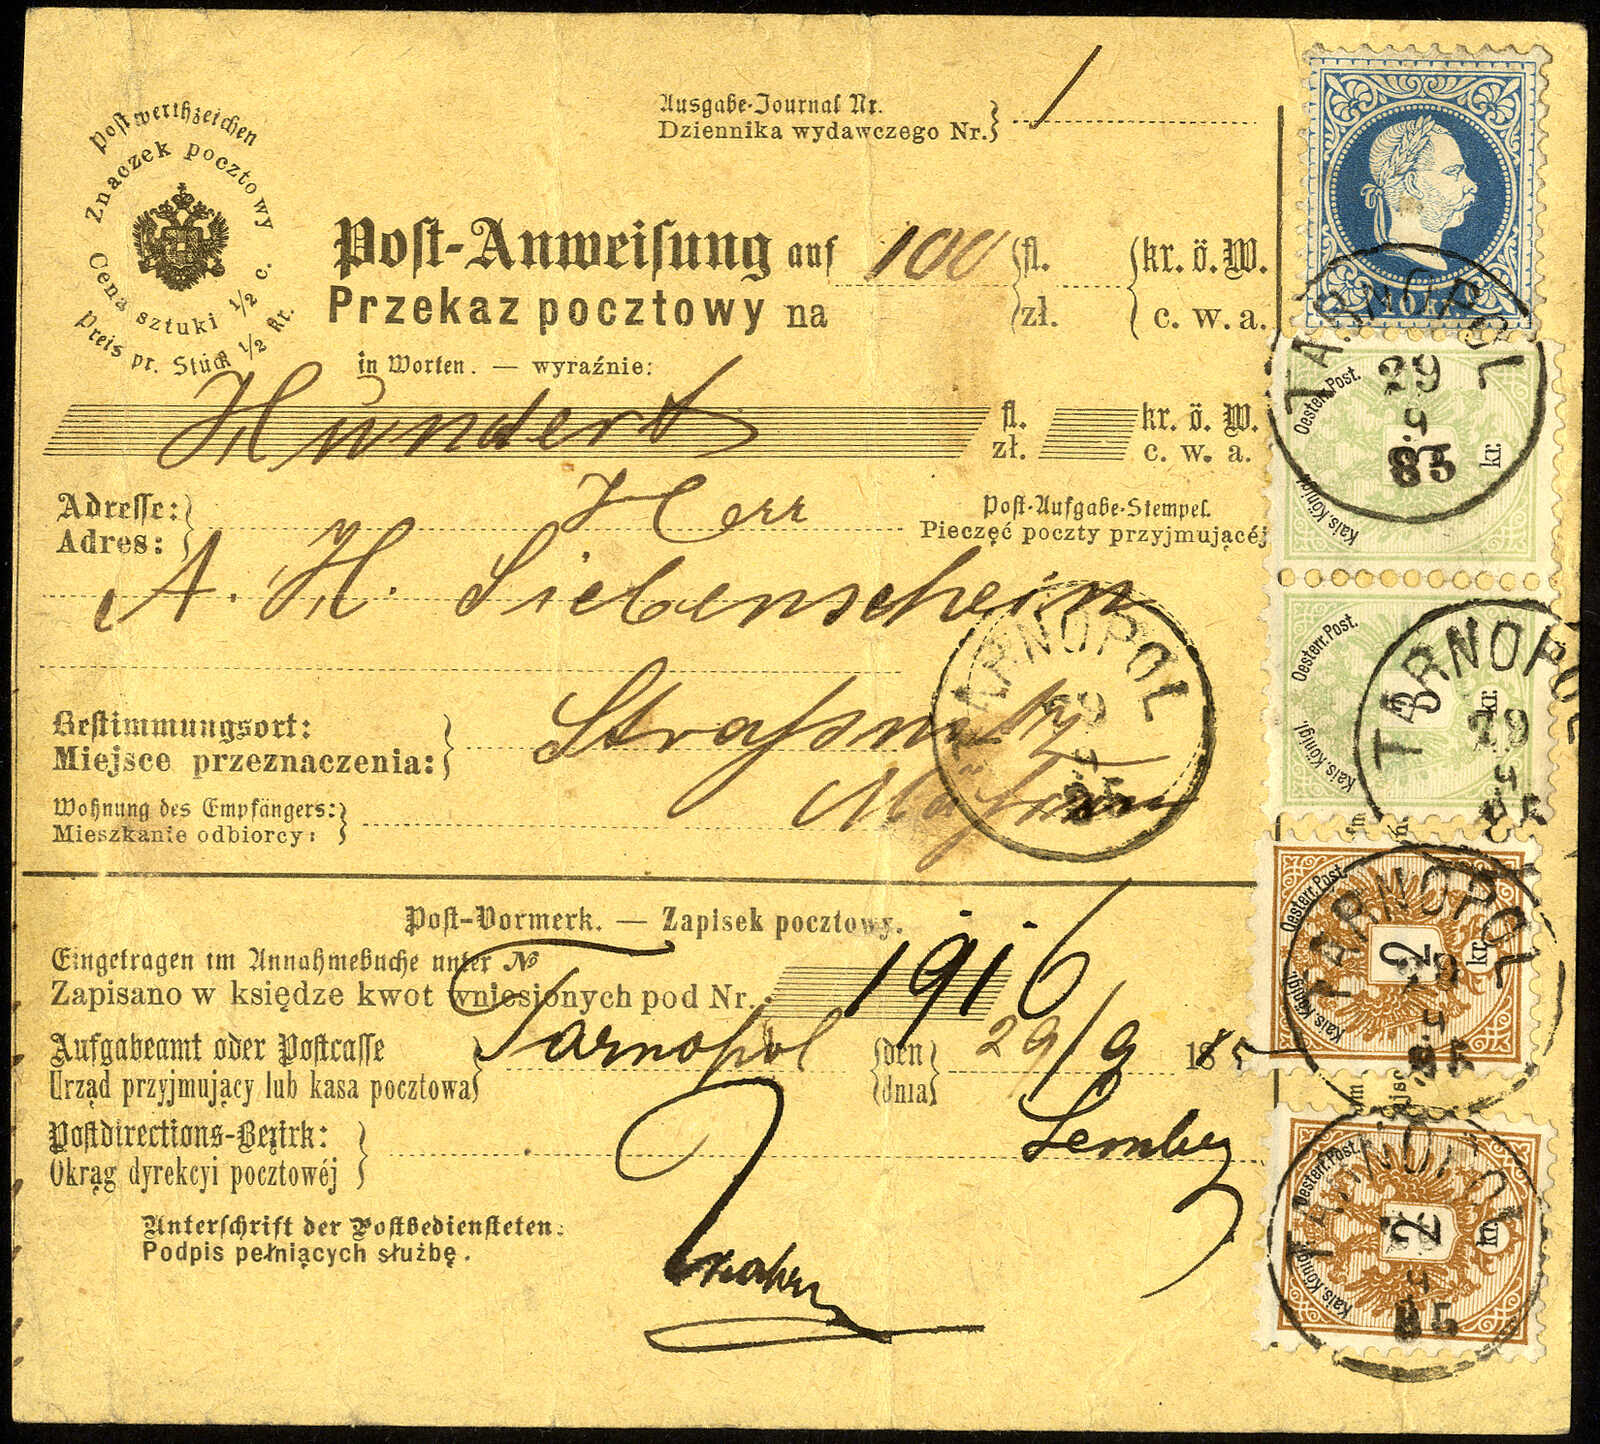 Postwerthzeichen
Znaczek pocztowy
Cena sztuki 1/2 c.
Preis pr. Stück 1/2 Kr.
Ausgabe-Journal Nr.
Dziennika wydawczego Nr. 1
Post-Anweisung auf 100 fl. kr. ö. W.
Przekaz pocztowy na zł. c. w. a.
in Worten. — wyraźnie:
Hundert fl. kr. ö. W.
zł. c. w. a.
Adresse: Herr
Adres:
Post-Aufgabe-Stempel.
Pieczęć poczty przyjmującéj
A. H. Siebenschein
Bestimmungsort: Straßnitz
Miejsce przeznaczenia:
Wohnung des Empfängers: Mähren
Mieszkanie odbiorcy:
TARNOPOL
29
9
85
Post-Vormerk. — Zapisek pocztowy.
Eingetragen im Annahmebuche unter №
Zapisano w księdze kwot wniesionych pod Nr. 1916
Aufgabeamt oder Postcasse Tarnopol den 29/9 1885
Urząd przyjmujący lub kasa pocztowa dnia
Postdirections-Bezirk: Lemberg
Okrąg dyrekcyi pocztowéj
Unterschrift der Postbediensteten:
Podpis pełniących służbę.
10 kr.
TARNOPOL
29
9
85
Kais. Königl. Oesterr. Post.
kr.
Kais. Königl. Oesterr. Post.
3 kr.
TARNOPOL
29
9
85
Kais. Königl. Oesterr. Post.
2 kr.
TARNOPOL
29
9
85
Kais. Königl. Oesterr. Post.
2 kr.
TARNOPOL
9
85